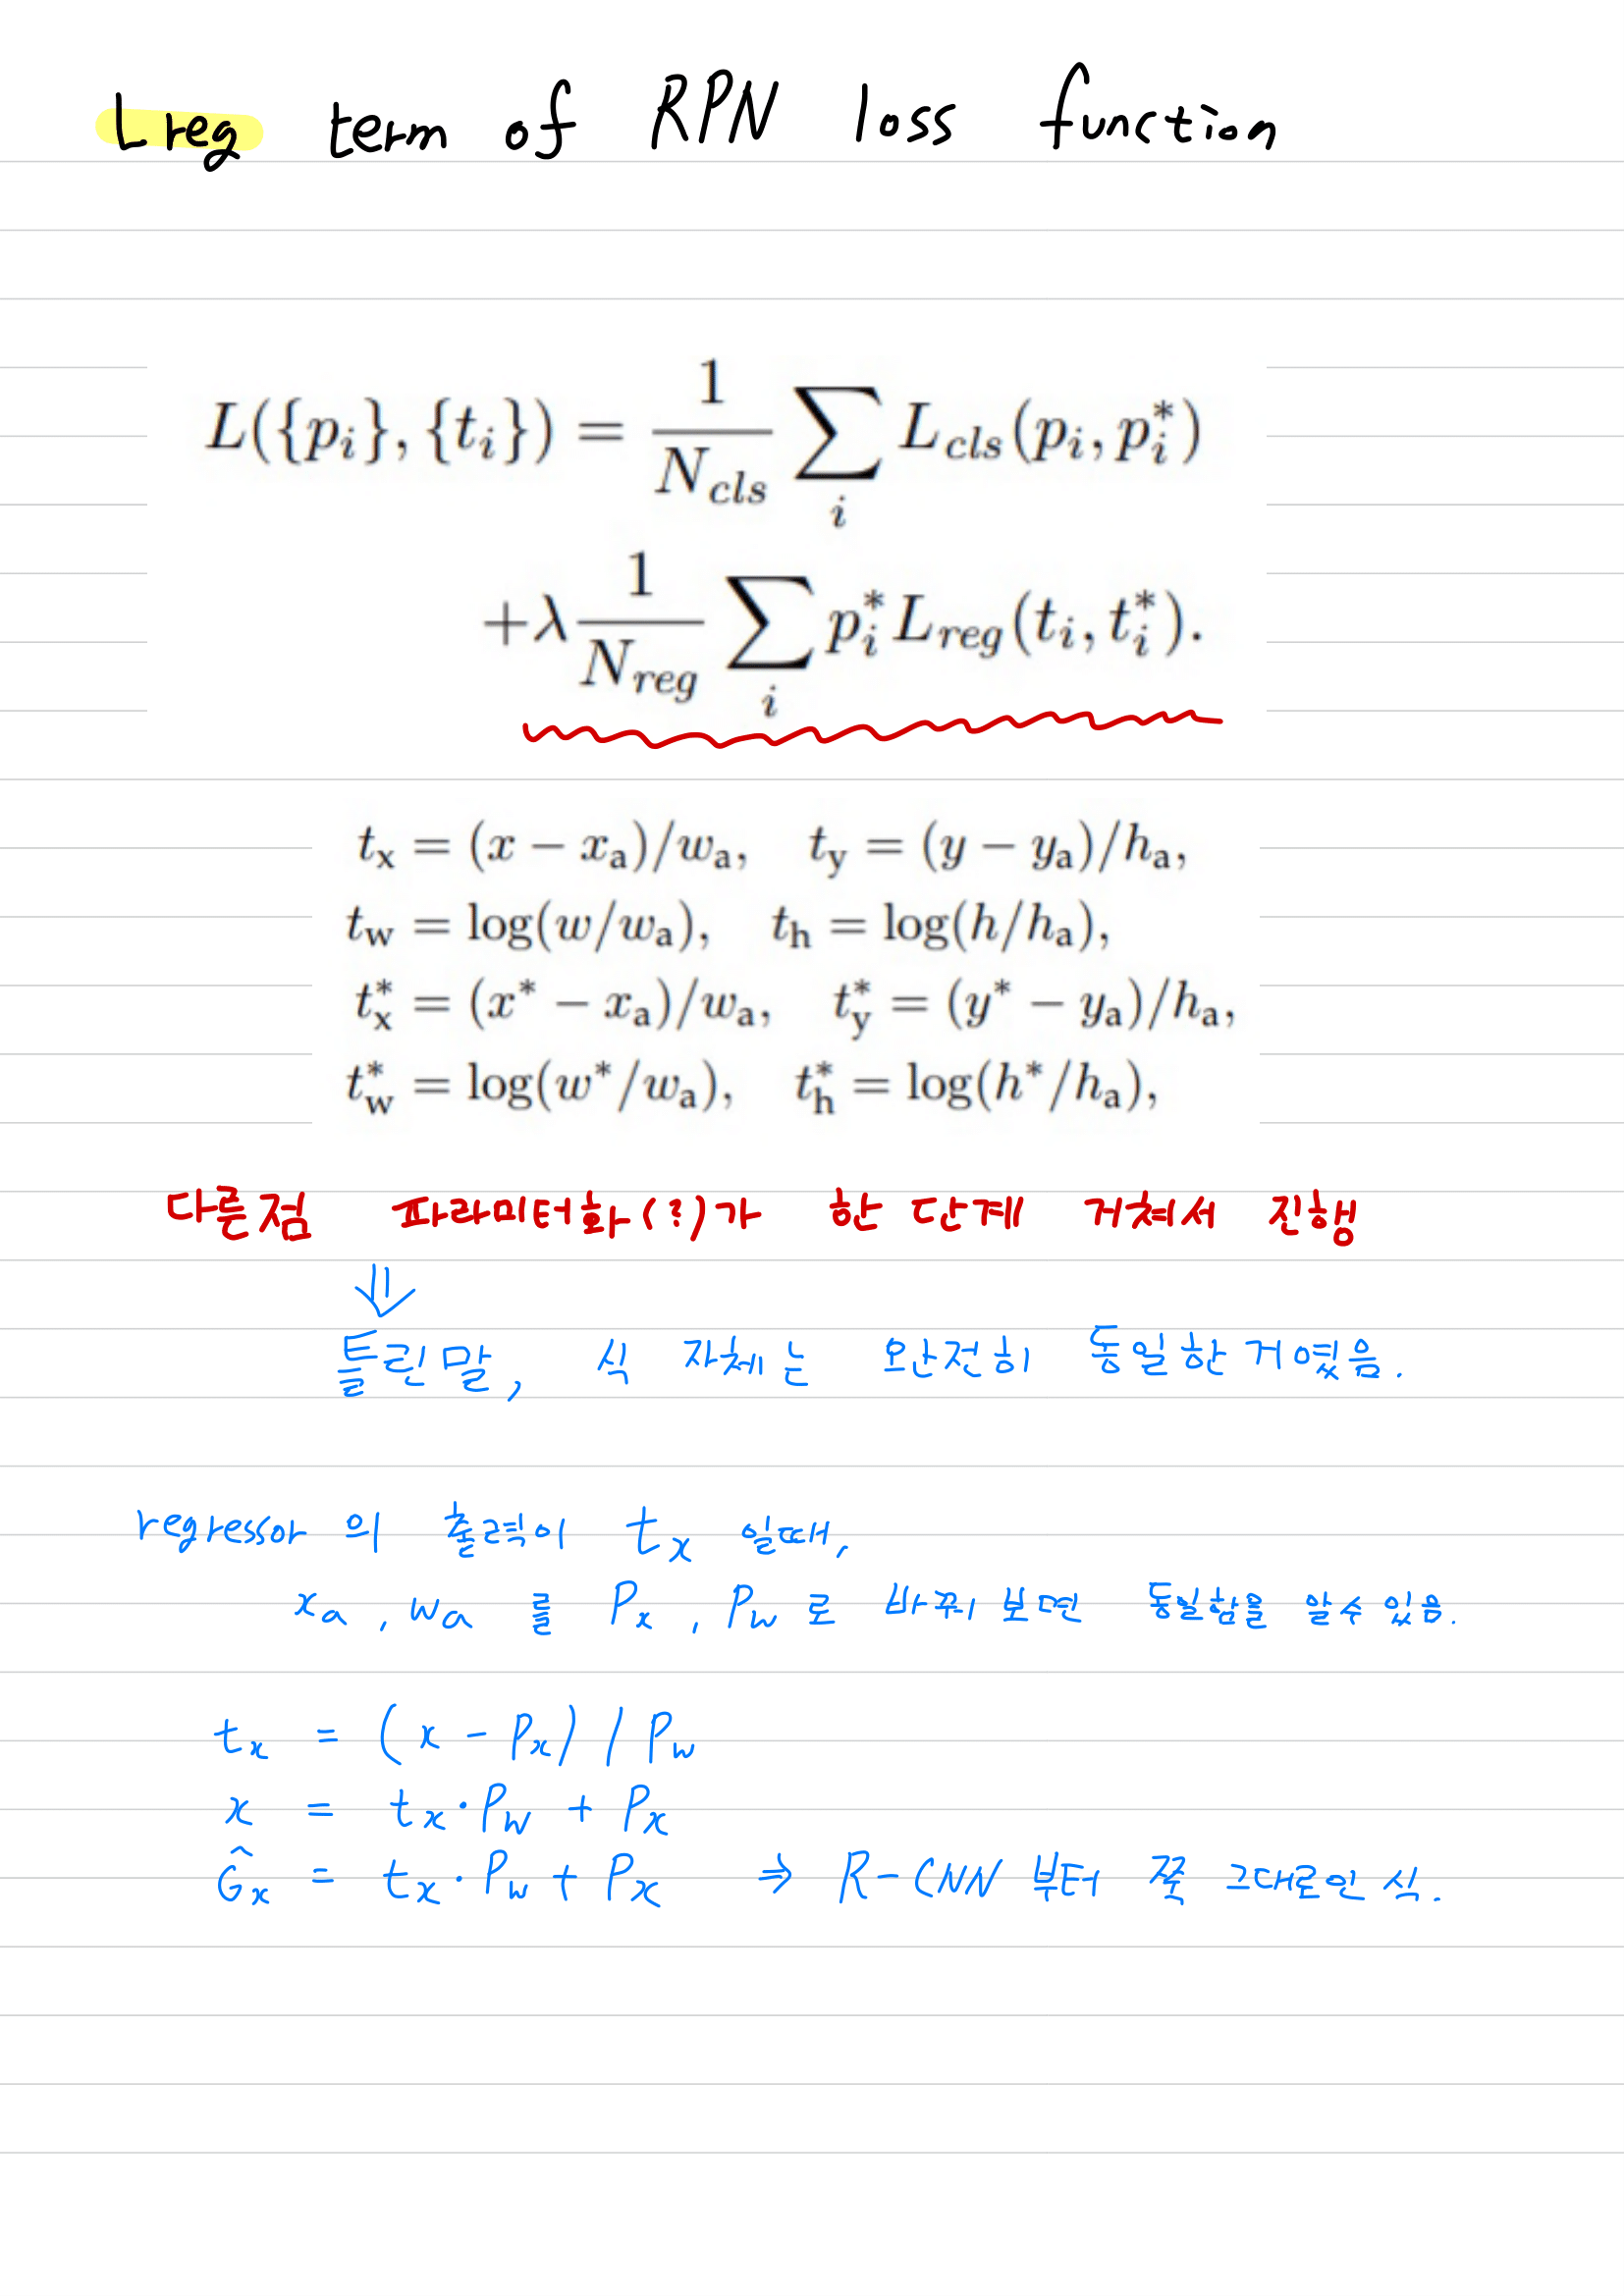 Lreg term of RPN loss function
L({p_i}, {t_i}) = \frac{1}{N_{cls}} \sum_i L_{cls}(p_i, p_i^*)
+\lambda \frac{1}{N_{reg}} \sum_i p_i^* L_{reg}(t_i, t_i^*).
t_x = (x − x_a)/w_a, t_y = (y − y_a)/h_a,
t_w = log(w/w_a), t_h = log(h/h_a),
t_x^* = (x^* − x_a)/w_a, t_y^* = (y^* − y_a)/h_a,
t_w^* = log(w^*/w_a), t_h^* = log(h^*/h_a),
다른점 파라미터화(?)가 한 단계 거쳐서 진행
⇓
틀린말, 식 자체는 완전히 동일한거였음.
regressor 의 출력이 t_x 일때,
x_a, w_a 를 P_x, P_w 로 바꿔보면 동일함을 알수있음.
t_x = (x − P_x) / P_w
x = t_x · P_w + P_x
Ĝ_x = t_x · P_w + P_x ⇒ R-CNN 부터 쭉 그대로인 식.